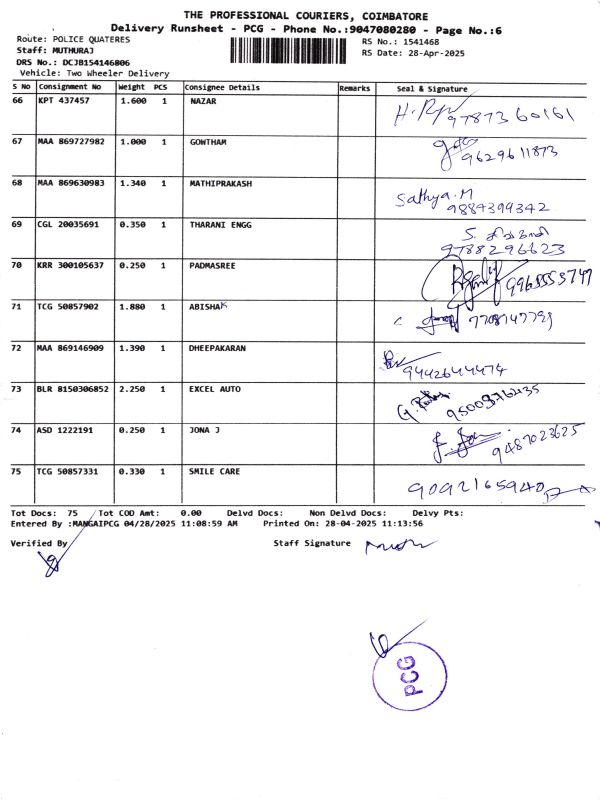 THE PROFESSIONAL COURIERS, COIMBATORE
Delivery Runsheet - PCG - Phone No.:9047080280 - Page No.:6
Route: POLICE QUATERES RS No.: 1541468
Staff: MUTHURAJ RS Date: 28-Apr-2025
DRS No.: DCJB154146806
Vehicle: Two Wheeler Delivery
S No Consignment No Weight PCS Consignee Details Remarks Seal & Signature
66 KPT 437457 1.600 1 NAZAR 9787360161
67 MAA 869727982 1.000 1 GOWTHAM 9629611873
68 MAA 869630983 1.340 1 MATHIPRAKASH Sathya.M
9884399342
69 CGL 20035691 0.350 1 THARANI ENGG
9788296623
70 KRR 300105637 0.250 1 PADMASREE
71 TCG 50857902 1.880 1 ABISHAK
72 MAA 869146909 1.390 1 DHEEPAKARAN
9442644474
73 BLR 8150306852 2.250 1 EXCEL AUTO
74 ASD 1222191 0.250 1 JONA J 9487023625
75 TCG 50857331 0.330 1 SMILE CARE 9092165940
Tot Docs: 75 Tot COD Amt: 0.00 Delvd Docs: Non Delvd Docs: Delvy Pts:
Entered By :MANGAIPCG 04/28/2025 11:08:59 AM Printed On: 28-04-2025 11:13:56
Verified By Staff Signature
PCG